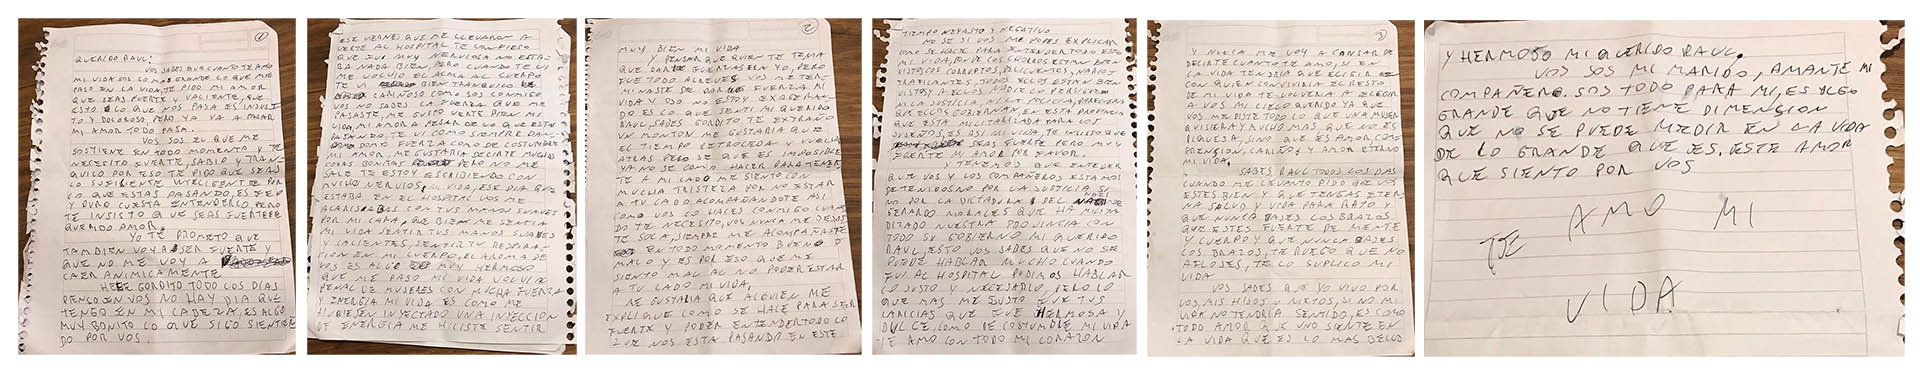 1
QUERIDO RAUL:
VOS SABES QUE CUANTO TE AMO
MI VIDA SOS LO MAS GRANDE LO QUE ME
PASO EN LA VIDA, TE PIDO MI AMOR
QUE SEAS FUERTE Y VALIENTE, QUE
ESTO LO QUE NOS PASA ES INJUS-
TO Y DOLOROSO, PERO YA VA A PASAR
MI AMOR TODO PASA.
VOS SOS EL QUE ME
SOSTIENE EN TODO MOMENTO Y TE
NECESITO FUERTE, SABIO Y TRAN-
QUILO POR ESO TE PIDO QUE SEAS
LO SUFICIENTE INTELIGENTE POR
LO QUE ESTAS PASANDO, ES FEO
Y DURO CUESTA ENTENDERLO, PERO
TE INSISTO QUE SEAS FUERTE
QUERIDO AMOR.
YO TE PROMETO QUE
TAMBIEN VOY A SER FUERTE Y
QUE NO ME VOY A
CAER ANIMICAMENTE
GORDITO TODO LOS DIAS
PIENSO EN VOS NO HAY DIA QUE
TENGO EN MI CABEZA, ES ALGO
MUY BONITO LO QUE SIGO SINTIEN-
DO POR VOS.
ESE VIERNES QUE ME LLEVARON A
VERTE AL HOSPITAL TE CONFIESO
QUE FUI MUY NERVIOSA NO ESTA-
BA NADA BIEN, PERO CUANDO TE VI
ME VOLVIO EL ALMA AL CUERPO
TE VI BIEN TRANQUILO
CARIÑOSO COMO SOS CONMIGO
VOS NO SABES LA FUERZA QUE ME
PASASTE, ME GUSTO VERTE BIEN MI
VIDA, MI AMOR A PESAR DE LO QUE ESTAS
PASANDO, TE VI COMO SIEMPRE DAN-
DOME FUERZA COMO DE COSTUMBRE
MI AMOR, ME GUSTARIA DECIRTE MUCHAS
COSAS BONITAS PERO NO ME
SALE TE ESTOY ESCRIBIENDO CON
MUCHO NERVIOS, MI VIDA, ESE DIA QUE
ESTABA EN EL HOSPITAL VOS ME
ACARICIABAS CON TUS MANOS SUAVES
POR MI CARA, QUE BIEN ME SENTIA
MI VIDA SENTIR TUS MANOS SUAVES
Y CALIENTES, SENTIR TU RESPIRA-
CION EN MI CUERPO, EL AROMA DE
VOS ES ALGO MUY HERMOSO
QUE ME PASO MI VIDA VOLVI A
PENAL DE MUJERES CON MUCHA FUERZA
Y ENERGIA MI VIDA ES COMO ME
HUBIESEN INYECTADO UNA INYECCION
DE ENERGIA ME HICISTE SENTIR
2
MUY BIEN MI VIDA
Y PENSAR QUE QUIEN TE TENIA
QUE DARTE FUERZAS ERA YO, PERO
FUE TODO AL REVES VOS ME TER-
MINASTE DE DAR FUERZA MI
VIDA Y ESO NO ESTOY EXAGERAN-
DO ES LO QUE SENTI MI QUERIDO
RAUL, SABES GORDITO TE EXTRAÑO
UN MONTON ME GUSTARIA QUE
EL TIEMPO RETROCEDA Y VUELVA
ATRAS PERO SE QUE ES IMPOSIBLE
YA NO SE COMO HACER PARA TENERTE
TE A MI LADO ME SIENTO CON
MUCHA TRISTEZA POR NO ESTAR
A TU LADO ACOMPAÑANDOTE ASI
COMO VOS LO HACES CONMIGO CUAN-
DO TE NECESITO, VOS NUNCA ME DEJAS-
TE SOLA, SIEMPRE ME ACOMPAÑASTE
EN TODO MOMENTO BUENO O
MALO Y ES POR ESO QUE ME
SIENTO MAL AL NO PODER ESTAR
A TU LADO MI VIDA,
ME GUSTARIA QUE ALGUIEN ME
EXPLIQUE COMO SE HACE PARA SER
FUERTE Y PODER ENTENDER TODO LO
QUE NOS ESTA PASANDO EN ESTE
TIEMPO NEFASTO Y NEGATIVO
NO SE SI VOS ME PODES EXPLICAR
COMO SE HACE PARA ENTENDER TODO ESTO
MI VIDA, PORQUE LOS CHORROS ESTAN BIEN
VISTOS CORRUPTOS, DELICUENTES, NARCO-
TRAFICANTES, TODOS ELLOS ESTAN BIEN
VISTOS Y A ELLOS NADIE LO PERSIGUE
NI LA JUSTICIA, NI LA POLICIA, PARECIERA
QUE ELLOS GOBIERNAN EN ESTA PROVINCIA
QUE ESTA MILITARIZADA PARA LOS
JUJEÑOS, ES ASI MI VIDA, TE INSISTO QUE
SEAS FUERTE PERO MUY
FUERTE MI AMOR POR FAVOR.
TENEMOS QUE ENTENDER
QUE VOS Y LOS COMPAÑEROS ESTAMOS
DETENIDOS NO POR LA JUSTICIA SI
NO POR LA DICTADURA DEL NAZI
GERARDO MORALES QUE HA MILITA
RIZADO NUESTRA PROVINCIA CON
TODO SU GOBIERNO MI QUERIDO
RAUL, ESTO VOS SABES QUE NO SE
PUEDE HABLAR MUCHO CUANDO
FUI AL HOSPITAL PUDIMOS HABLAR
LO JUSTO Y NECESARIO, PERO LO
QUE MAS ME GUSTO FUE TUS
CARICIAS QUE FUE HERMOSA Y
DULCE, COMO DE COSTUMBRE MI VIDA
TE AMO CON TODO MI CORAZON
3
Y NUNCA ME VOY A CANSAR DE
DECIRTE CUANTO TE AMO, SI EN
LA VIDA TENDRIA QUE ELEGIR
CON QUIEN CONVIVIRIA EL RESTO
DE MI VIDA TE VOLVERIA A ELEGIR
A VOS MI CIELO QUERIDO YA QUE
VOS ME DISTE TODO LO QUE UNA MUJER
QUISIERA Y MUCHO MAS QUE NO ES
RIQUEZA, SINO QUE ES AMOR COM-
PRENSION, CARIÑO, Y AMOR ETERNO
MI VIDA.
SABES RAUL TODOS LOS DIAS
CUANDO ME LEVANTO PIDO QUE VOS
ESTES BIEN Y QUE TENGAS ETER-
NA SALUD Y VIDA PARA RATO Y
QUE NUNCA BAJES LOS BRAZOS
QUE ESTES FUERTE DE MENTE
Y CUERPO Y QUE NUNCA BAJES
LOS BRAZOS, TE RUEGO QUE NO
AFLOJES, TE LO SUPLICO MI
VIDA
VOS SABES QUE YO VIVO POR
VOS, MIS HIJOS Y NIETOS, SI NO MI
VIDA NO TENDRIA SENTIDO, ES COMO
TODO AMOR QUE UNO SIENTE EN
LA VIDA QUE ES LO MAS BELLO
Y HERMOSO MI QUERIDO RAUL.
VOS SOS MI MARIDO, AMANTE MI
COMPAÑERO. SOS TODO PARA MI, ES ALGO
GRANDE QUE NO TIENE DIMENSION
QUE NO SE PUEDE MEDIR EN LA VIDA
DE LO GRANDE QUE ES. ESTE AMOR
QUE SIENTO POR VOS
TE AMO MI
VIDA